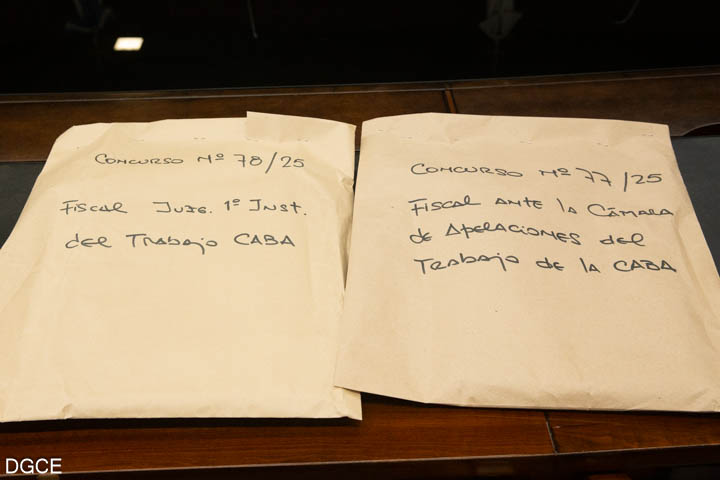 Concurso Nº 78/25
Fiscal Juzg. 1º Inst.
del Trabajo CABA
Concurso Nº 77/25
Fiscal ante la Cámara
de Apelaciones del
Trabajo de la CABA
DGCE